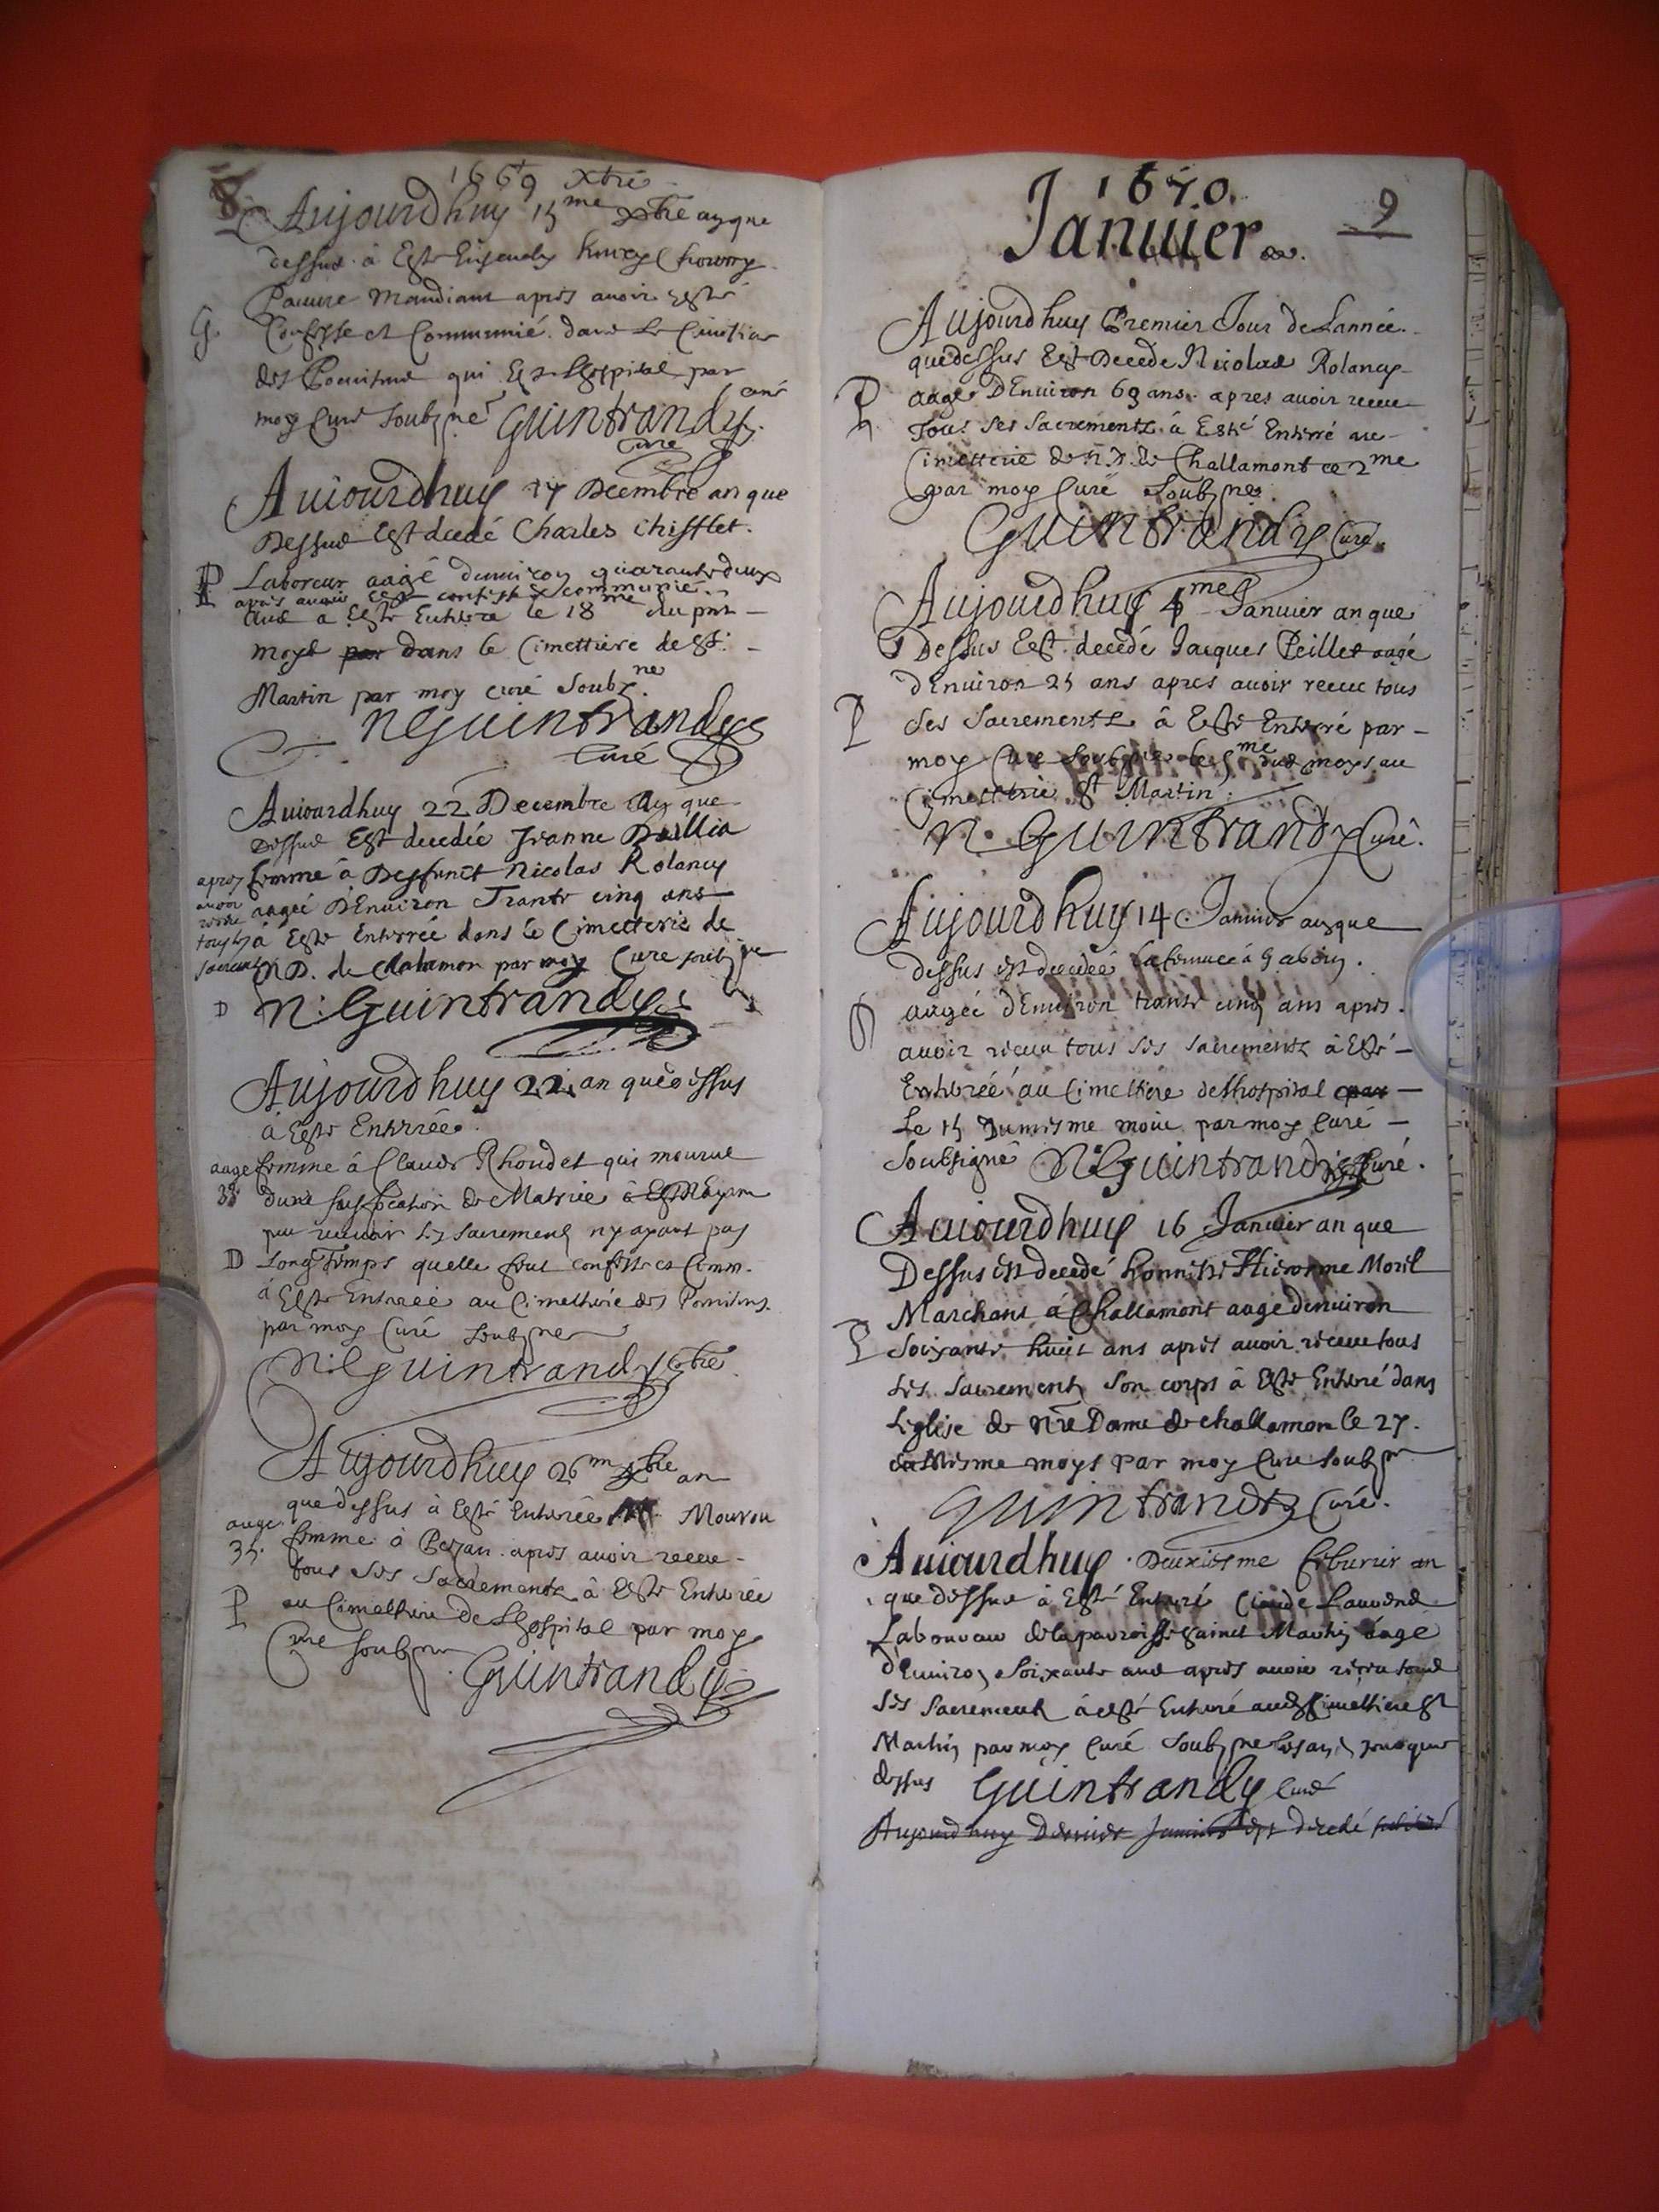 1669 Xbre
8
Aujourdhuy 15me Xbre an que
dessus à Esté
Pauure Mandiant apres auoir Esté
Confesse et Communié dans le Cimetiere
des Penitens qui Est Lhospital par
moy Curé Soubzne Guintrandy
Cure
Auiourdhuy 17 Decembre an que
Dessus Est decedé Charles Chifflet
Laboreur aagé denuiron quarante deux
apres auoir esté confessé & communié
ans a Esté Enterré le 18me du pnt
moys par dans le Cimettiere de St
Martin par moy curé Soubzne
N Guintrandy
Curé
Auiourdhuy 22 Decembre an que
Dessus Est decedée Jeanne
femme à Deffunct Nicolas Rolancy
aagée DEnuiron Trante cinq ans
apres auoir receu tous les sacrements
à Esté Enterrée dans le Cimetterie de
N D. de Chalamon par moy Cure soubzne
D N: Guintrandy
Aujourdhuy 22 an que dessus
a Esté Enterrée
aage femme à Claude Rhoudet qui mourut
35 dune suffocation de Matrice
peu receuoir les sacrements ny ayant pas
D Long Temps quelle feut confesse et Comm.
à Esté Enterrée au Cimettiere des Penitens
par moy Curé soubzne
N: Guintrandy
Aujourdhuy 26me Xbre an
que dessus à Esté Enterrée Mouron
aage femme à Bezan apres auoir receu
35. tous ses Sacrements à Esté Enterrée
P au Cimettiere de Lhospital par moy
Cure soubzne
Guintrandy
1670.
Januier
9
Aujourdhuy Premier Jour de Lannée
que dessus Est Decede Nicolas Rolancy
aagé DEnuiron 69 ans apres auoir receu
Tous ses Sacrements à Esté Enterré au
Cimetterie de N. D. de Challamont ce 2me
par moy Curé Soubzne
Guintrandy Curé
Aujourdhuy 4me Januier an que
Dessus Est decedé Jacques Peillet aagé
dEnuiron 25 ans apres auoir receu tous
P ses Sacrements à Esté Enterré par
moy Cure Soubzne le 5me dud moys au
Cimetterie St Martin
N. Guintrandy Curé.
Aujourdhuy 14 Januier an que
dessus est decedeé la femme à Gabin
aagée dEnuiron trante cinq ans apres
auoir receu tous ses sacrements à Esté
Enterrée au Cimettiere de Lhospital par
Le 15 Dumesme mois par moy Curé
Soubsigné N: Guintrandy Curé.
Auiourdhuy 16 Januier an que
Dessus est decedé honneste Hierosme Moril
Marchant à Challamont aagé denuiron
P Soixante huict ans apres auoir receu tous
ses Sacrements Son corps à Esté Enterré dans
Leglise de Nre Dame de challamon le 27.
du Mesme moys Par moy Cure soubzne
Guintrandy Curé.
Auiourdhuy Deuxiesme Feburier an
que dessus à Esté Enterré Claude
Laboureur de la parroisse sainct Martin aagé
dEnuiron Soixante ans apres auoir receu tous
ses Sacrements à esté Enterré aud Cimettiere St
Martin par moy Curé Soubzne les an & jour que
dessus Guintrandy Curé
Aujourdhuy Dernier Januier est decedé